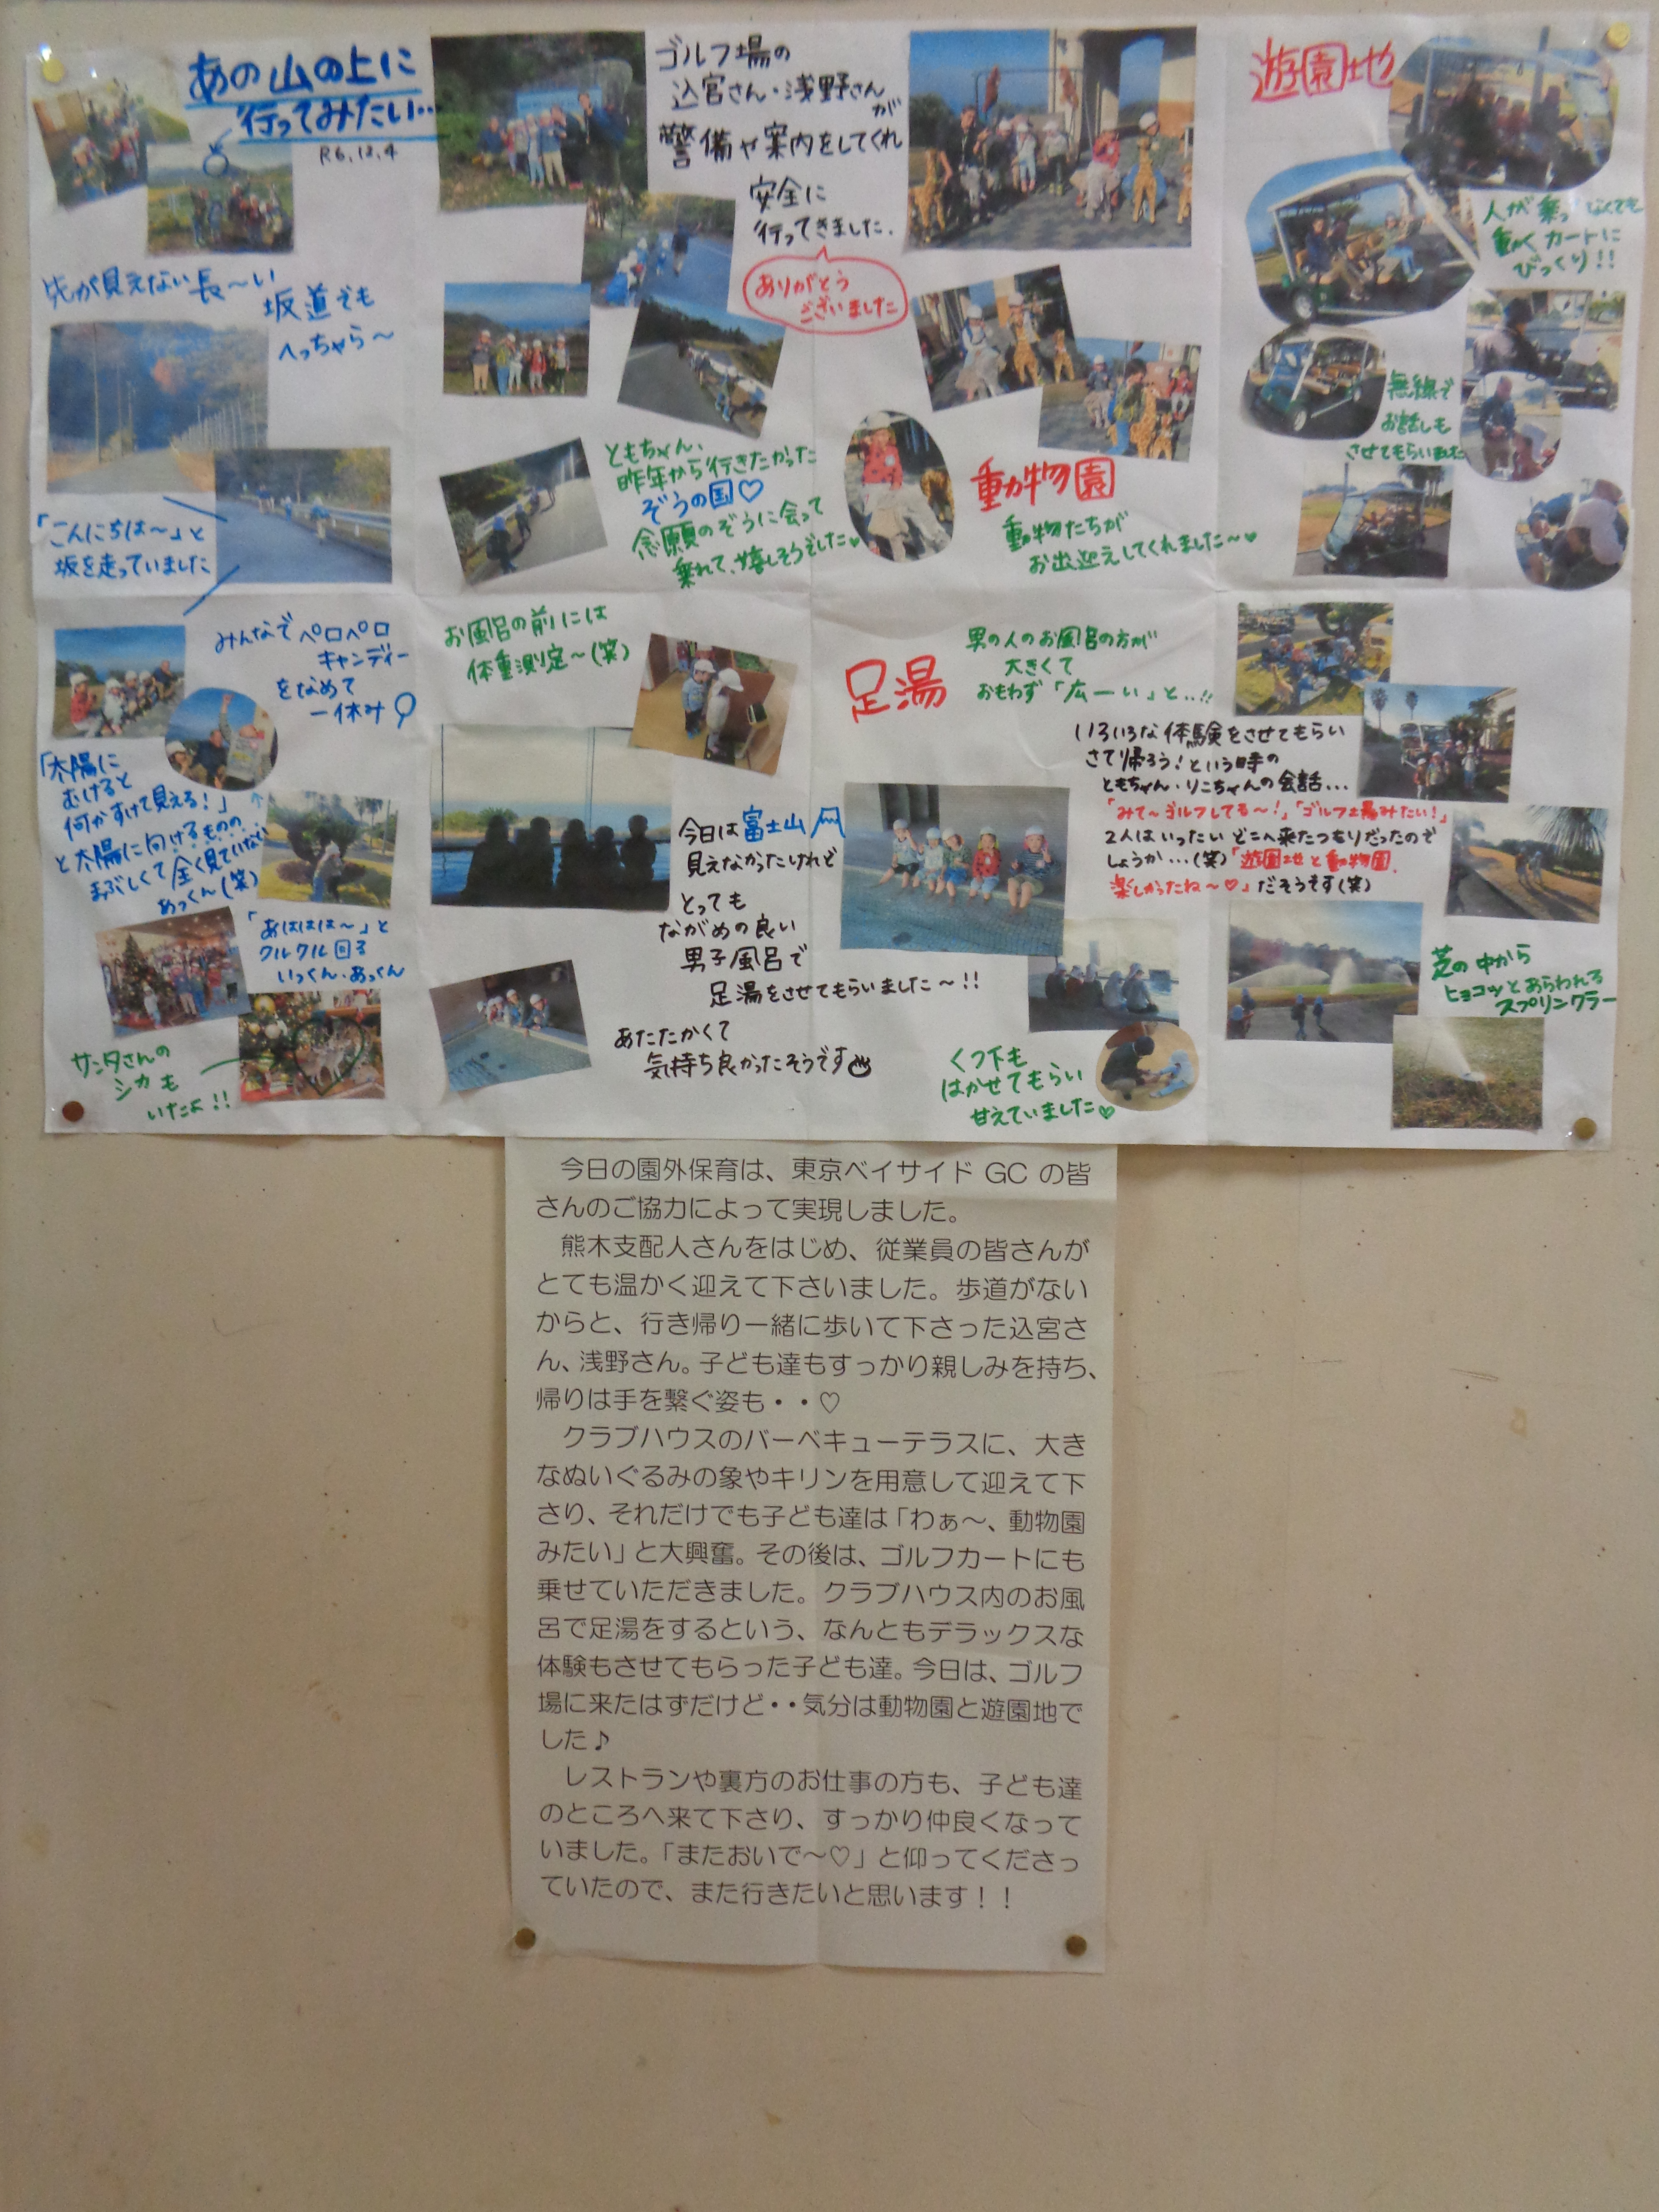 あの山の上に
行ってみたい…
R6.12.4
先が見えない長〜い
坂道でも
へっちゃら〜
「こんにちは〜」と
坂を走っていました
みんなでペロペロ
キャンディー
をなめて
一休み
「太陽に
むけると
何かすけて見える！」
と太陽に向けるものの
まぶしくて全く見ていない
あっくん(笑)
「あははは〜」と
クルクル回る
いっくん・あっくん
サンタさんの
シカも
いたよ!!
ゴルフ場の
込宮さん・浅野さん
が
警備や案内をしてくれ
安全に
行ってきました.
ありがとう
ございました
ともちゃん、
昨年から行きたかった
ぞうの国♡
念願のぞうに会って
乗れて、嬉しそうでした♥
動物園
動物たちが
お出迎えしてくれました〜♥
遊園地
人が乗ってなくても
動くカートに
びっくり!!
無線で
お話しも
させてもらいました
お風呂の前には
体重測定〜(笑)
足湯
男の人のお風呂の方が
大きくて
おもわず「広ーい」と..!!
今日は富士山
見えなかったけれど
とっても
ながめの良い
男子風呂で
足湯をさせてもらいました〜!!
あたたかくて
気持ち良かったそうです
くつ下も
はかせてもらい
甘えていました♡
いろいろな体験をさせてもらい
さて帰ろう！という時の
ともちゃん・りこちゃんの会話…
「みて〜ゴルフしてる〜！」「ゴルフ場みたい！」
2人はいったいどこへ来たつもりだったので
しょうか…(笑)「遊園地と動物園、
楽しかったね〜♡」だそうです(笑)
芝の中から
ヒョコッとあらわれる
スプリンクラー
今日の園外保育は、東京ベイサイド GC の皆
さんのご協力によって実現しました。
熊木支配人さんをはじめ、従業員の皆さんが
とても温かく迎えて下さいました。歩道がない
からと、行き帰り一緒に歩いて下さった込宮さ
ん、浅野さん。子ども達もすっかり親しみを持ち、
帰りは手を繋ぐ姿も・・♡
クラブハウスのバーベキューテラスに、大き
なぬいぐるみの象やキリンを用意して迎えて下
さり、それだけでも子ども達は「わぁ〜、動物園
みたい」と大興奮。その後は、ゴルフカートにも
乗せていただきました。クラブハウス内のお風
呂で足湯をするという、なんともデラックスな
体験もさせてもらった子ども達。今日は、ゴルフ
場に来たはずだけど・・気分は動物園と遊園地で
した♪
レストランや裏方のお仕事の方も、子ども達
のところへ来て下さり、すっかり仲良くなって
いました。「またおいで〜♡」と仰ってくださっ
ていたので、また行きたいと思います！！